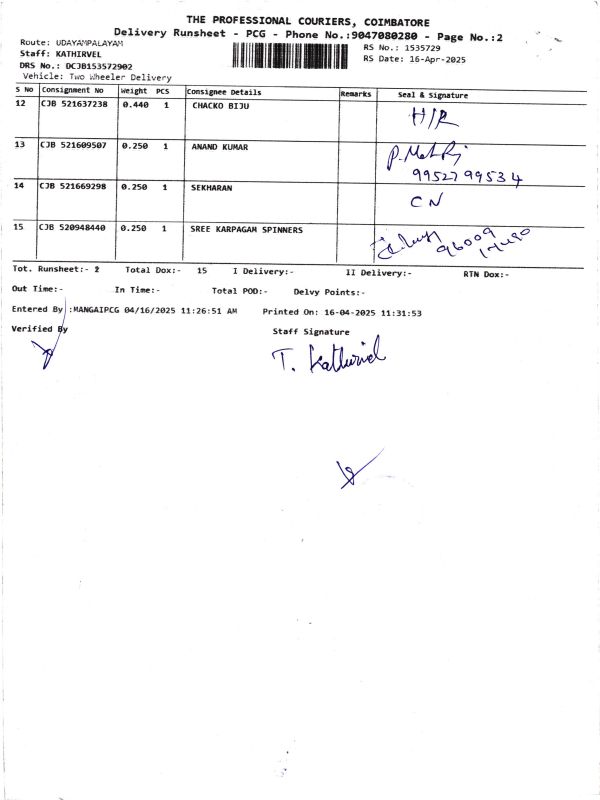 THE PROFESSIONAL COURIERS, COIMBATORE
Delivery Runsheet - PCG - Phone No.:9047080280 - Page No.:2
Route: UDAYAMPALAYAM
RS No.: 1535729
Staff: KATHIRVEL
RS Date: 16-Apr-2025
DRS No.: DCJB153572902
Vehicle: Two Wheeler Delivery
S No Consignment No Weight PCS Consignee Details Remarks Seal & Signature
12 CJB 521637238 0.440 1 CHACKO BIJU H/R
13 CJB 521609507 0.250 1 ANAND KUMAR
9952799534
14 CJB 521669298 0.250 1 SEKHARAN CN
15 CJB 520948440 0.250 1 SREE KARPAGAM SPINNERS 96009
Tot. Runsheet:- 2 Total Dox:- 15 I Delivery:- II Delivery:- RTN Dox:-
Out Time:- In Time:- Total POD:- Delvy Points:-
Entered By :MANGAIPCG 04/16/2025 11:26:51 AM Printed On: 16-04-2025 11:31:53
Verified By Staff Signature
T. Kathirvel